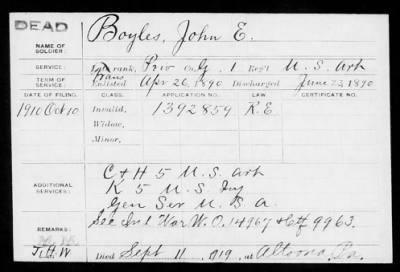 DEAD
NAME OF SOLDIER: Boyles, John E.
SERVICE: rank, Priv Co. G, 1 Reg't U. S. Art
TERM OF SERVICE: Trans Enlisted Apr 26, 1890 Discharged June 23, 1890
DATE OF FILING. CLASS. APPLICATION NO. LAW. CERTIFICATE NO.
1910 Oct 10 Invalid, 1392859 R.E.
Widow,
Minor,
ADDITIONAL SERVICES:
C & H 5 U. S. Art
K 5 U. S. Inf
Gen Ser U. S. A.
See Ind War W. O. 14967 & Ctf 9963.
REMARKS:
Died Sept 11, 1919, at Altoona, Pa.